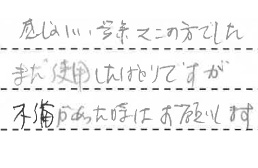 感じいい営業マンの方でした
まだ使用したばかりですが
不備があった時はお願いします